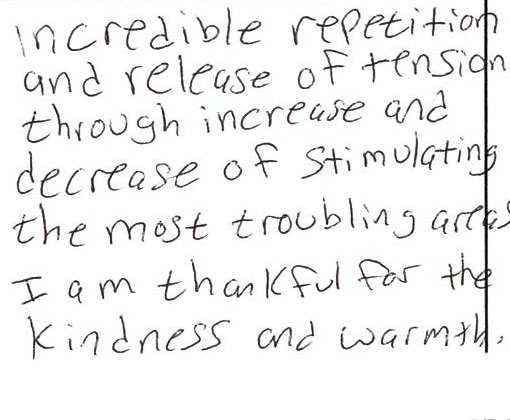 incredible repetition
and release of tension
through increase and
decrease of stimulating
the most troubling areas
I am thankful for the
kindness and warmth.